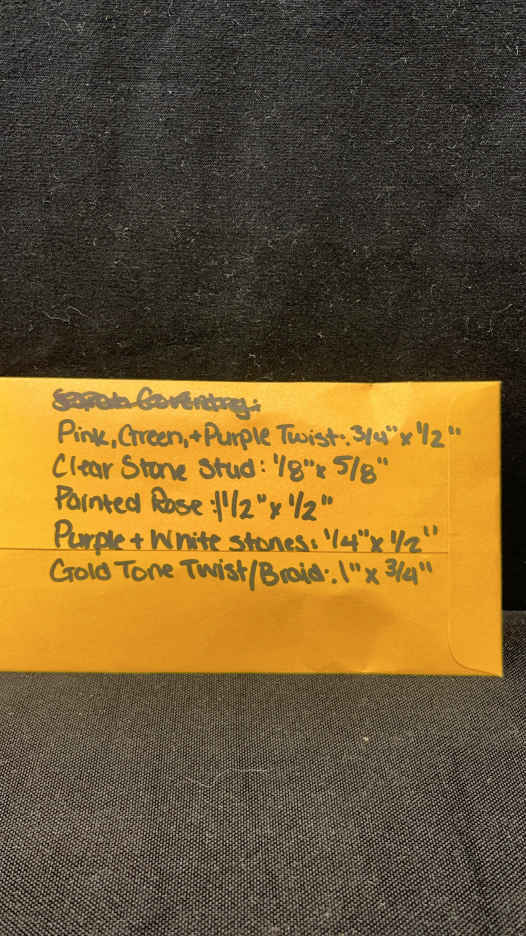 Sarah Coventry:
Pink, Green, + Purple Twist: 3/4" x 1/2"
Clear Stone Stud: 1/8" x 5/8"
Painted Rose: 1/2" x 1/2"
Purple + White stones: 1/4" x 1/2"
Gold Tone Twist/Braid: 1" x 3/4"